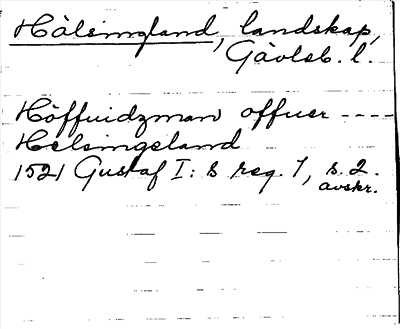 Hälsingland, landskap,
Gävleb. l.
Höffuidzman offuer ----
Helsingeland
1521 Gustaf I:s reg. 1, s. 2.
avskr.